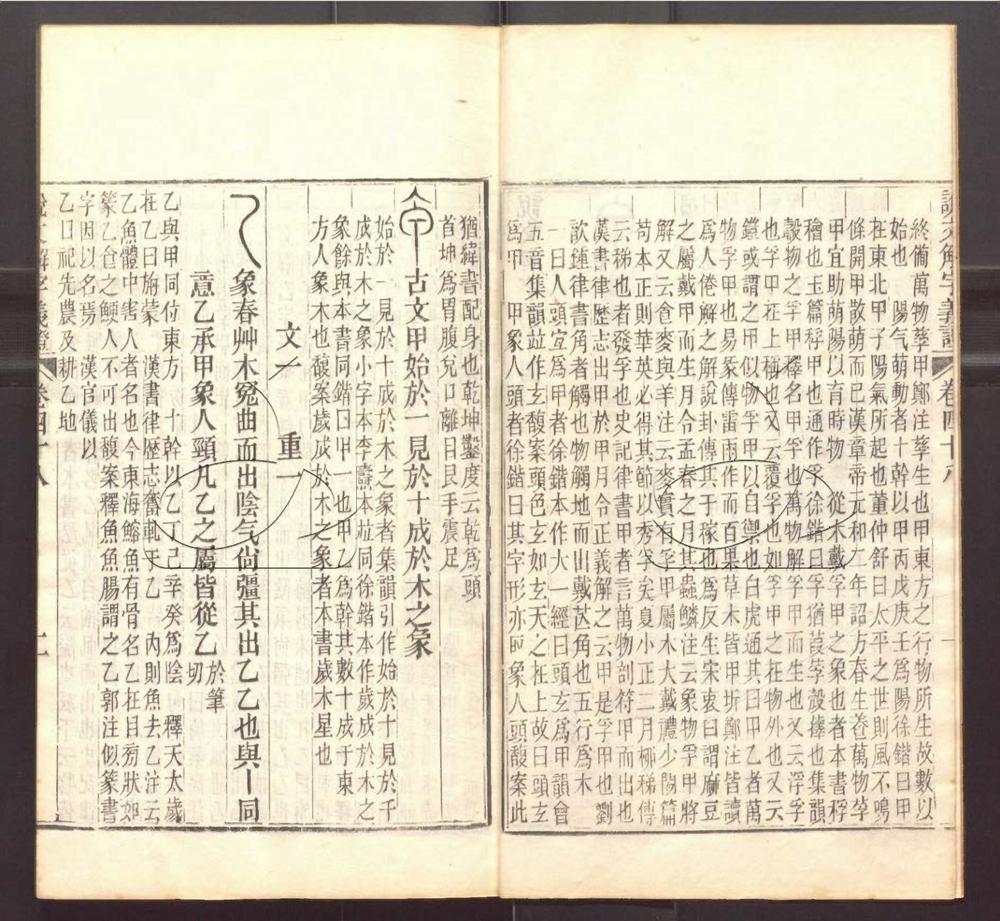 說文解字義證 卷四十八
終備萬物孳甲鄭注孳生也甲東方之行物所生故數以
始也 陽气萌動者十幹以甲丙戊庚壬爲陽徐鍇曰甲
在東北甲子陽氣所起也董仲舒曰太平之世則風不鳴
條開甲散萌而已漢章帝元和二年詔方春生養萬物莩
甲宜助萌陽以育時物 從木戴孚甲之象也者本書稃
穭也玉篇稃甲也通作孚徐鍇曰孚猶葭莩㲉據也集韻
㲉物之孚甲釋名甲孚也萬物解孚甲而生也又云浮孚
也孚甲在上稱也又云覆孚也如孚甲之在物外也又云
鎧或謂之甲似物孚甲以自禦也白虎通其日甲乙者萬
物孚甲也易彖傳雷雨作而百果草木皆甲坼鄭注皆讀
爲人倦解之解說卦傳其于稼也爲反生宋衷曰謂麻豆
之屬戴甲而生月令孟春之月其蟲鱗注云象物孚甲將
解又云食麥與羊注云麥實有孚甲屬木大戴禮少閒篇
苟本正則華英必得其節以秀孚矣夏小正二月柳稊傳
云稊也者發孚也史記律書甲者言萬物剖符甲而出也
漢書律歷志出甲於甲月令正義解之云甲是孚甲也劉
歆鍾律書角者觸也物觸地而出戴芒角也五行爲木
一曰人頭宜爲甲者徐鍇本作大一經曰頭玄爲甲韻會
五音集韻竝作玄馥案頭色玄如玄天之在上故曰頭玄
爲甲 甲象人頭者徐鍇曰其字形亦卽象人頭馥案此
猶緯書配身也乾坤鑿度云乾爲頭
首坤爲胃腹兌口離目艮手震足
古文甲始於一見於十成於木之象
始於一見於十成於木之象者集韻引作始於十見於千
成於木之象小字本李燾本竝同徐鍇本作歲成於木之
象餘與本書同鍇曰甲一也甲乙爲幹其數十成于東
方人象木也馥案歲成於木之象者本書歲木星也
文一 重一
象春艸木冤曲而出陰气尚彊其出乙乙也與丨同
意乙承甲象人頸凡乙之屬皆從乙 於筆切
乙與甲同位東方 十幹以乙丁己辛癸爲陰 釋天太歲
在乙曰旃蒙 漢書律歷志奮軋于乙 內則魚去乙注云
乙魚體中害人者名也今東海鰫魚有骨名乙在目旁狀如
篆乙食之鯁人不可出馥案釋魚魚腸謂之乙郭注似篆書
字因以名焉 漢官儀以
乙日祀先農及耕乙地
說文解字義證 卷四十八 二